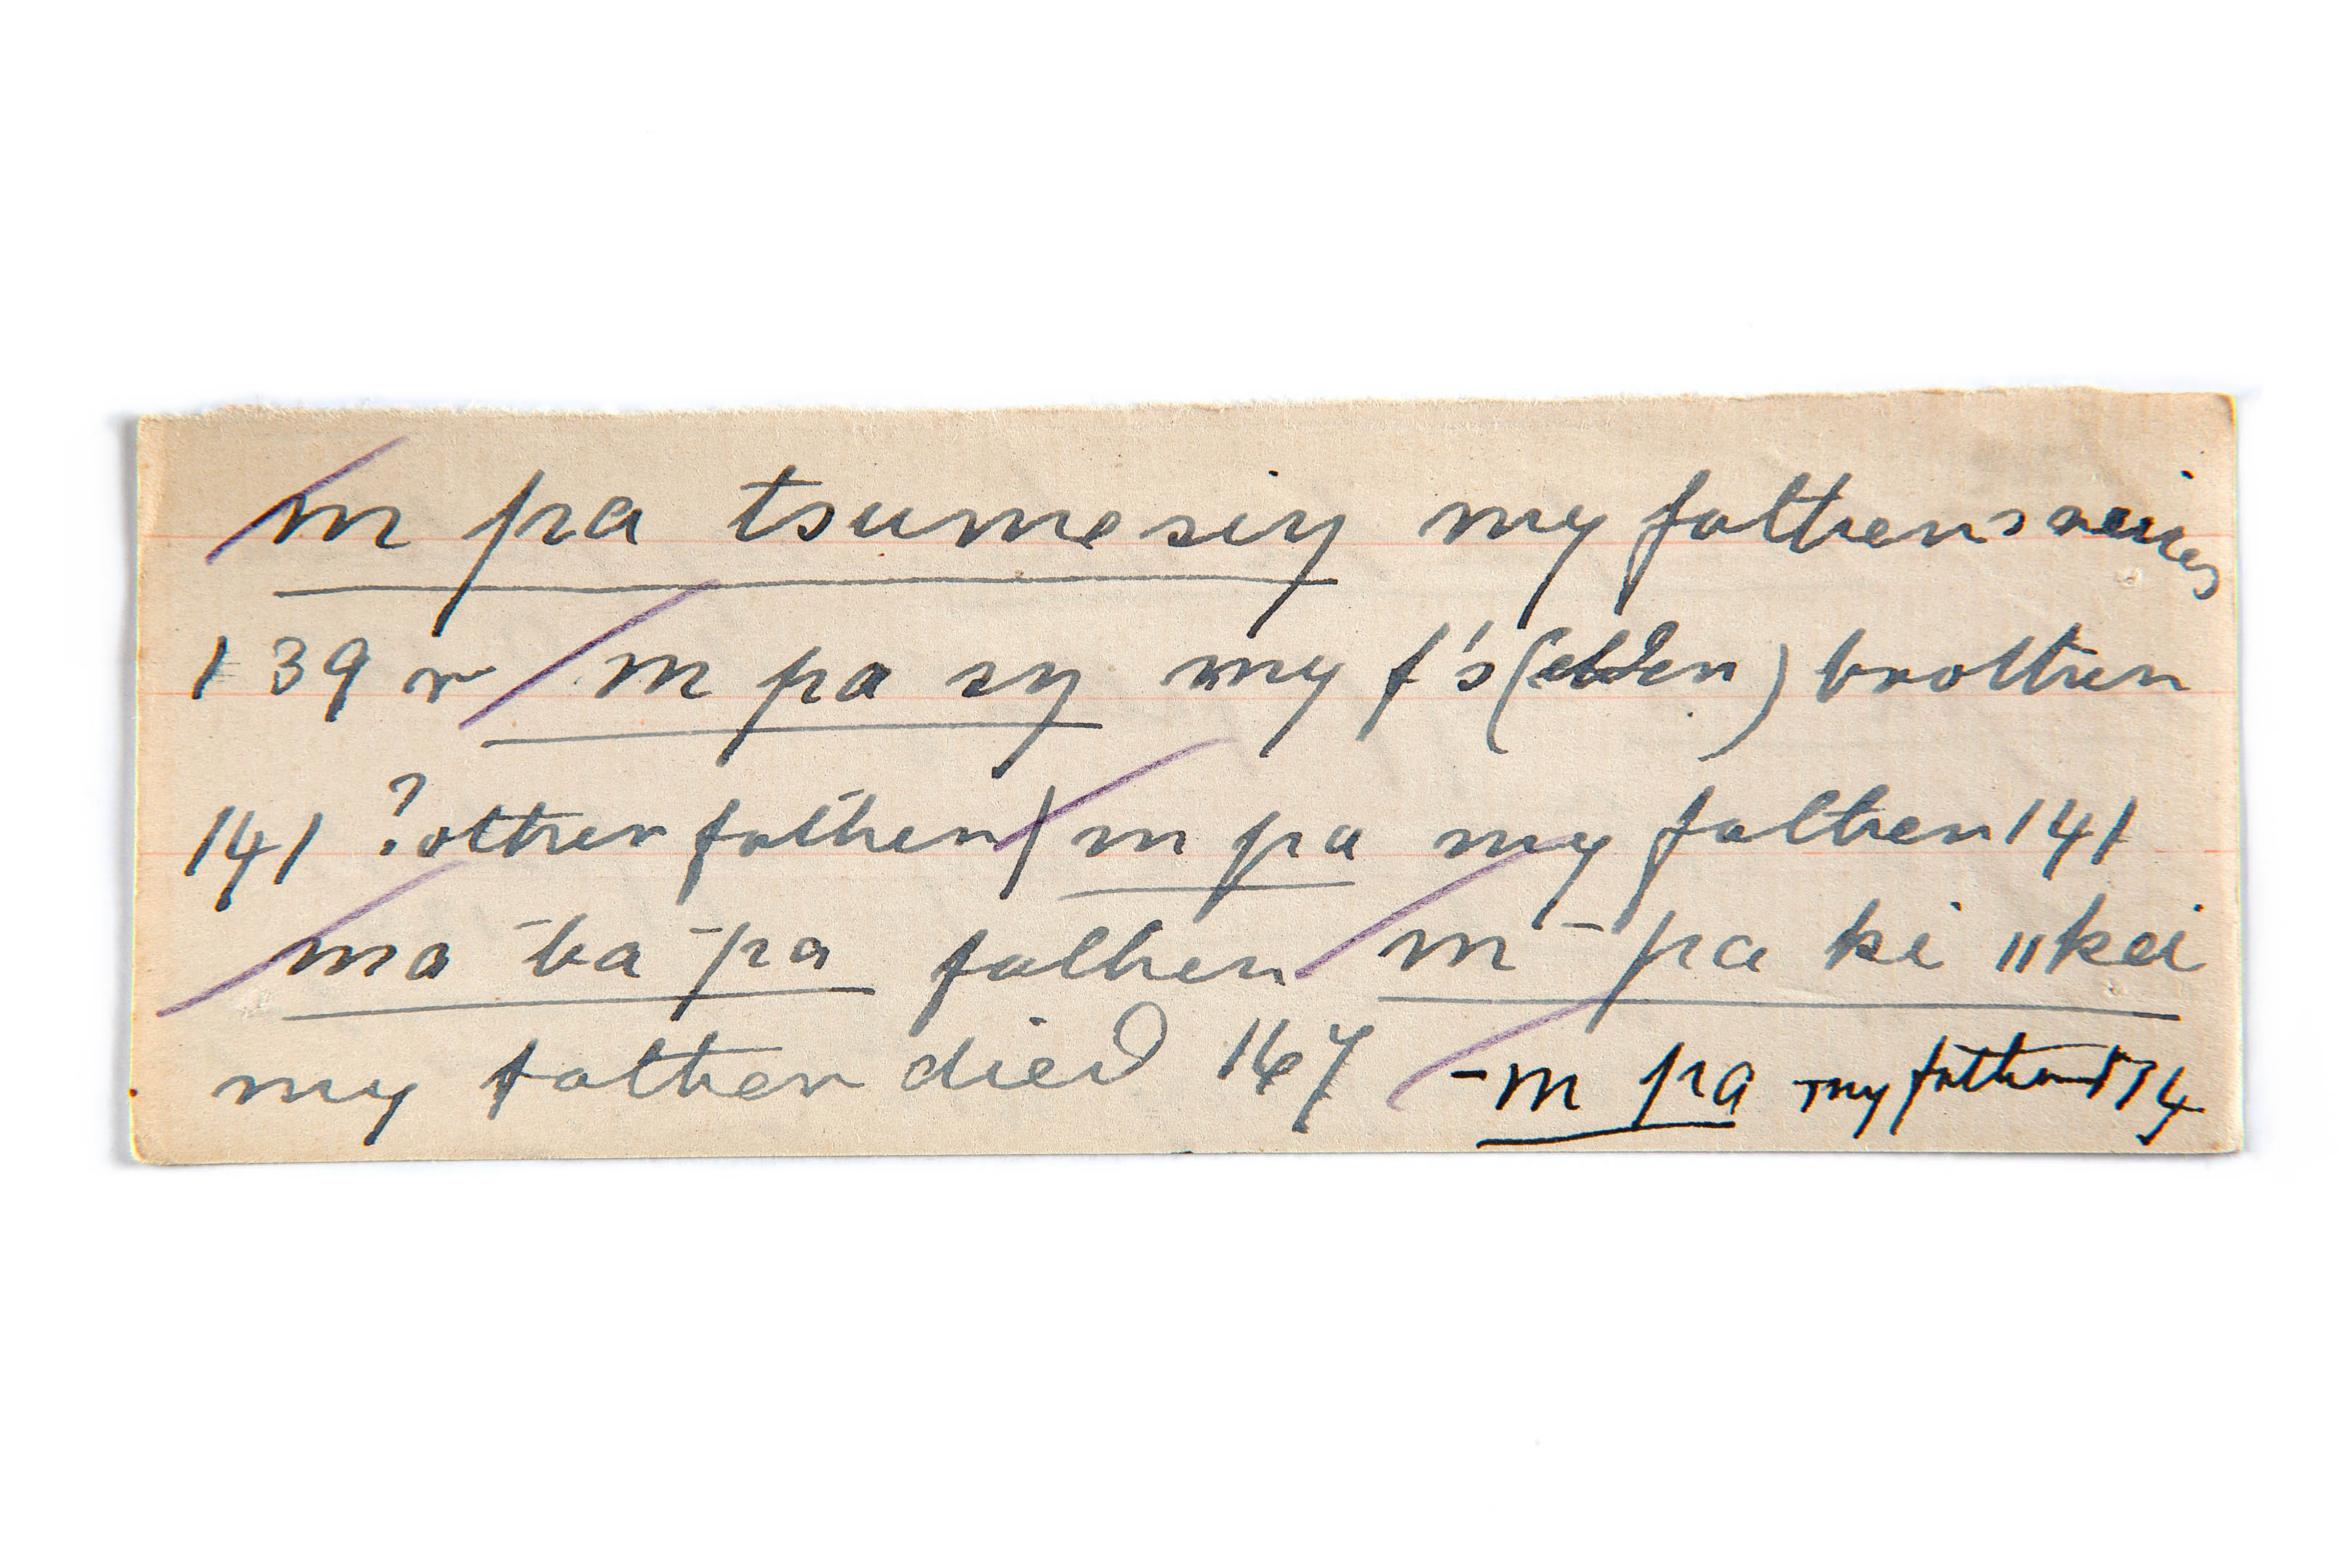 m pa tsumesiŋ my fathers veins
139 r m pa sŋ my f's (elder) brother
141 ? other father) m pa my father 141
ma ‾ba ‾pa father m ‾pa ki ǁkei
my father died 167 ‾m pa my father 174